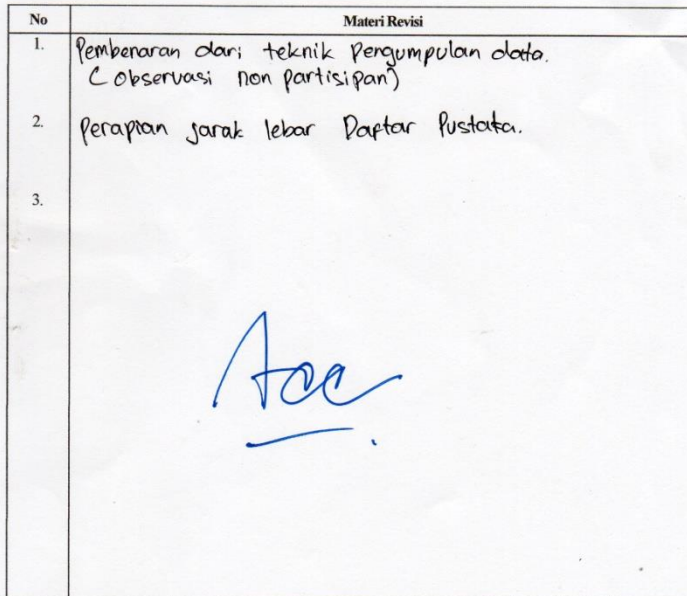 No Materi Revisi
1. Pembenaran dari teknik Pengumpulan data.
(Observasi non partisipan)
2. Perapian jarak lebar Daftar Pustaka.
3.
Acc